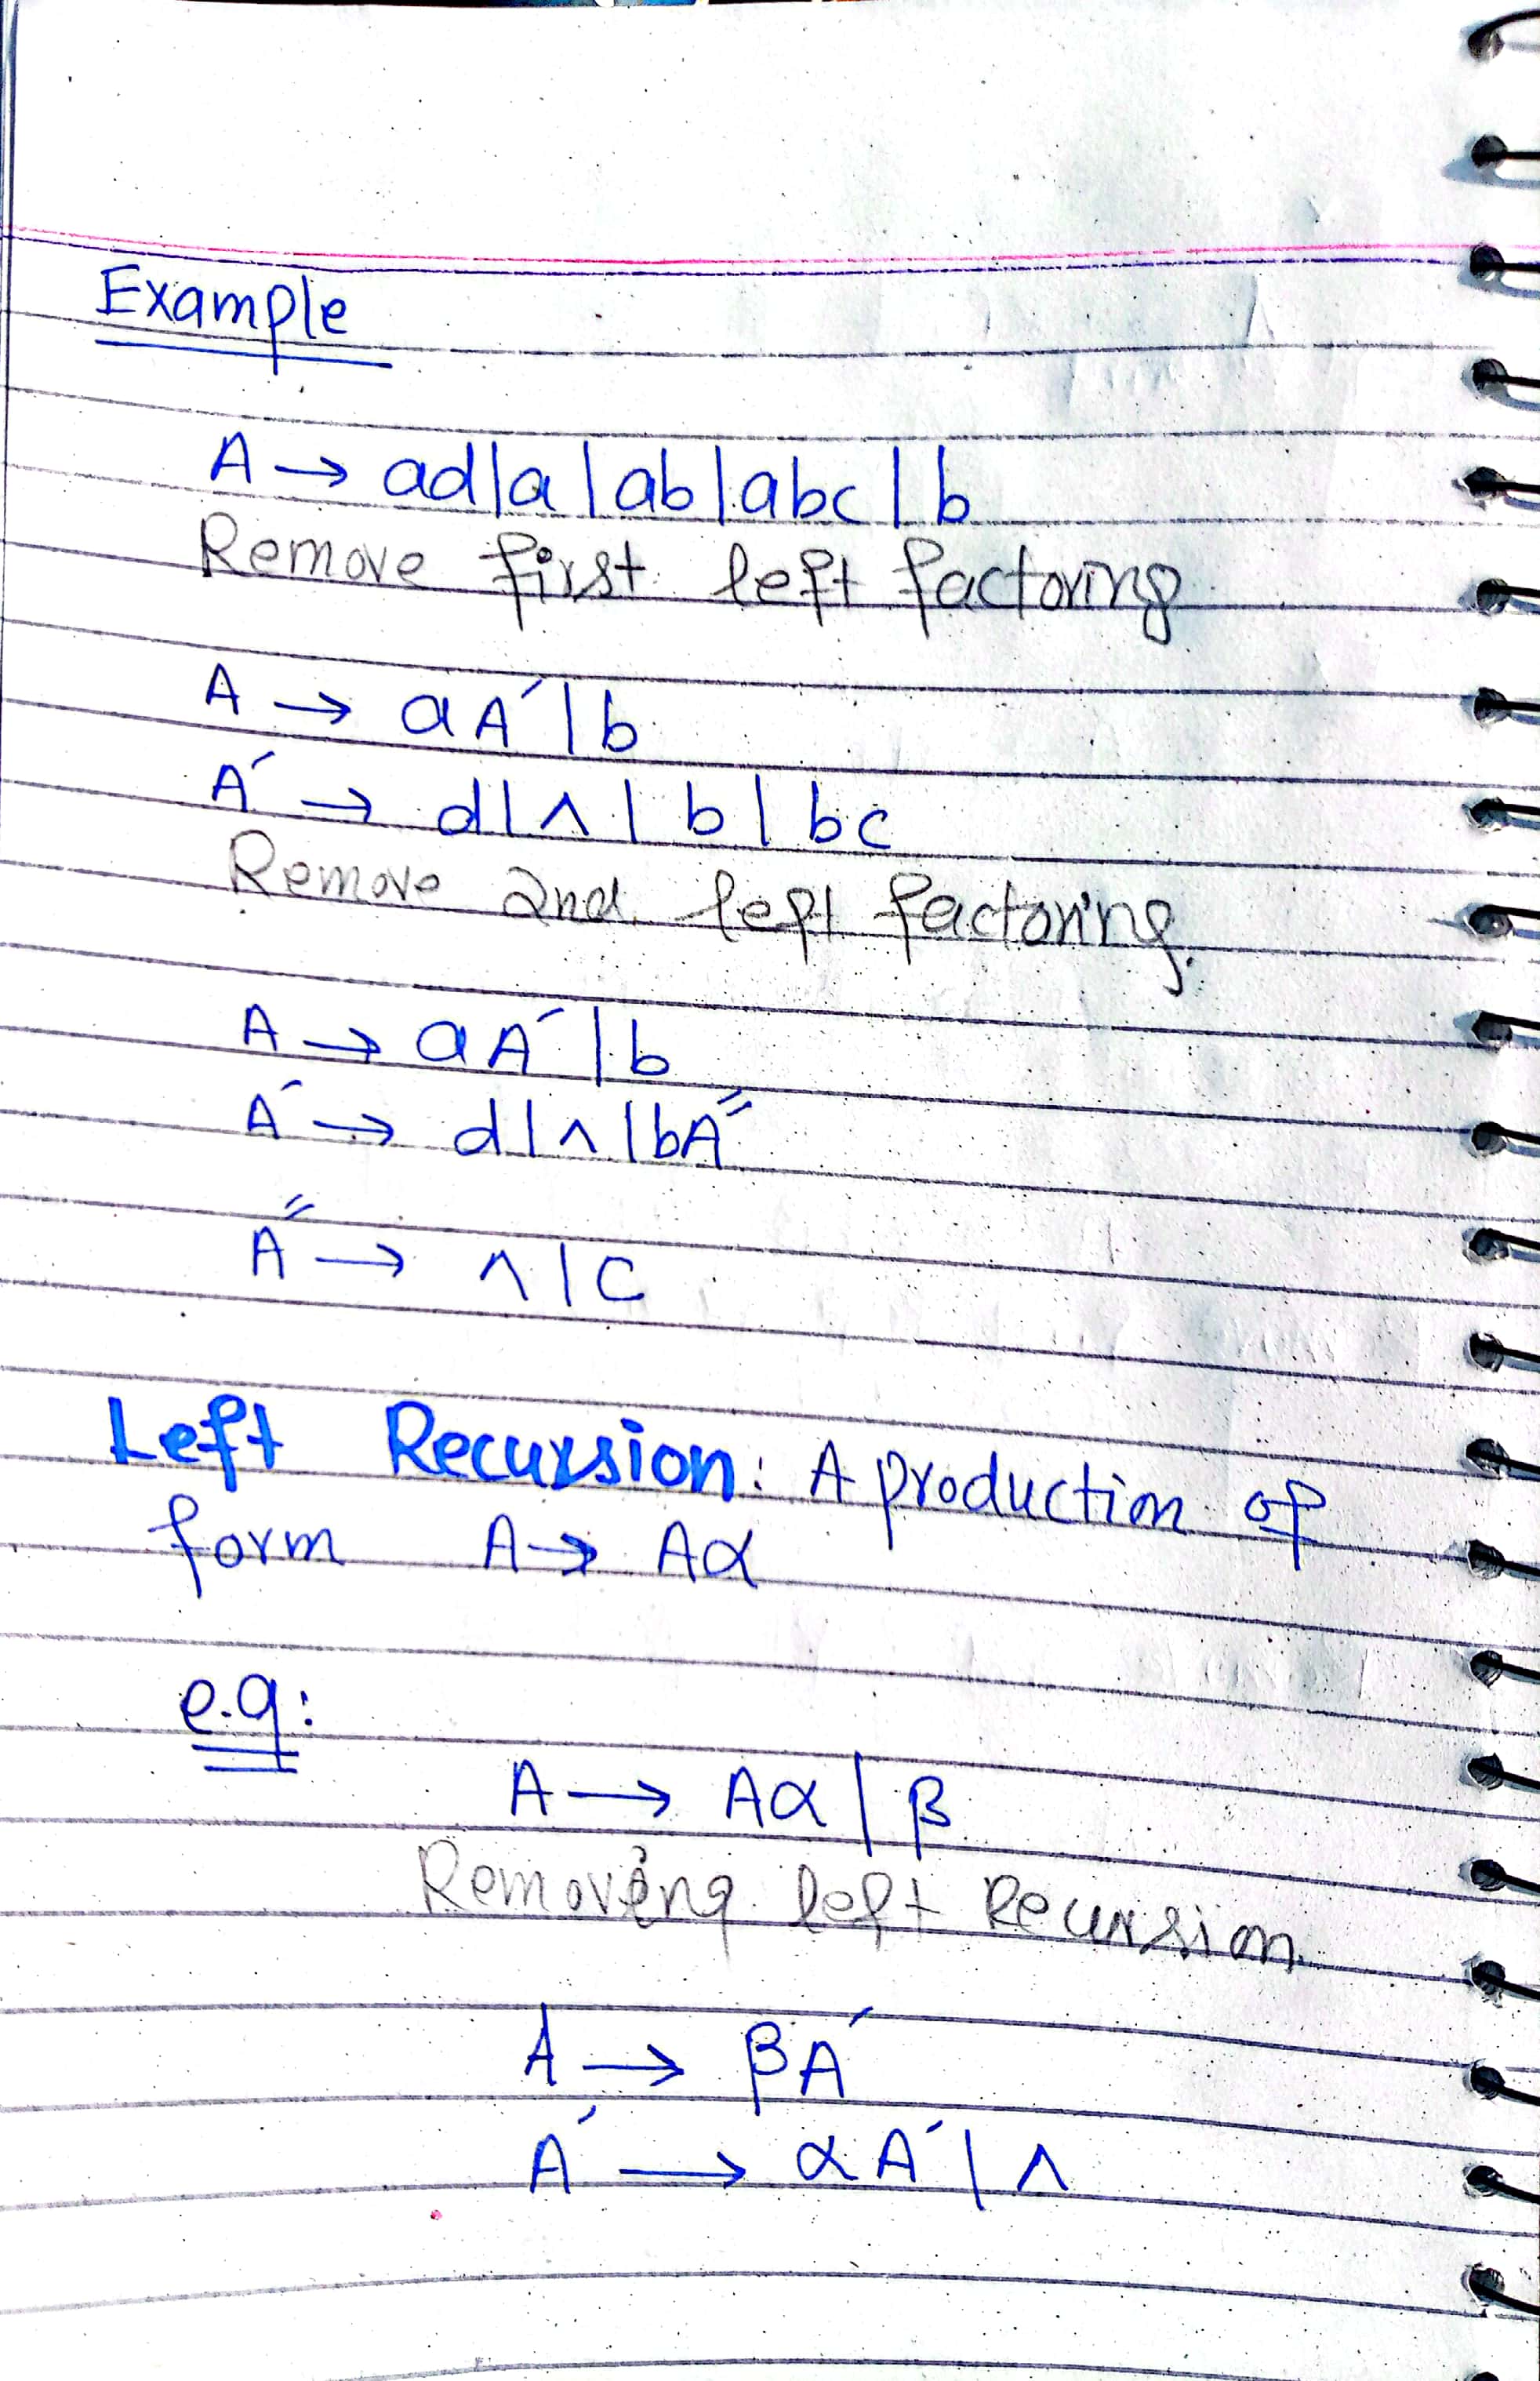 Example
A → ad|a|ab|abc|b
Remove first left factoring
A → aA′|b
A′ → d|^|b|bc
Remove 2nd left factoring.
A → aA′|b
A′ → d|^|bA″
A″ → ^|C
Left Recursion: A production of
form A → Aα
e.g:
A → Aα|β
Removing left Recursion.
A → βA′
A′ → αA′|^